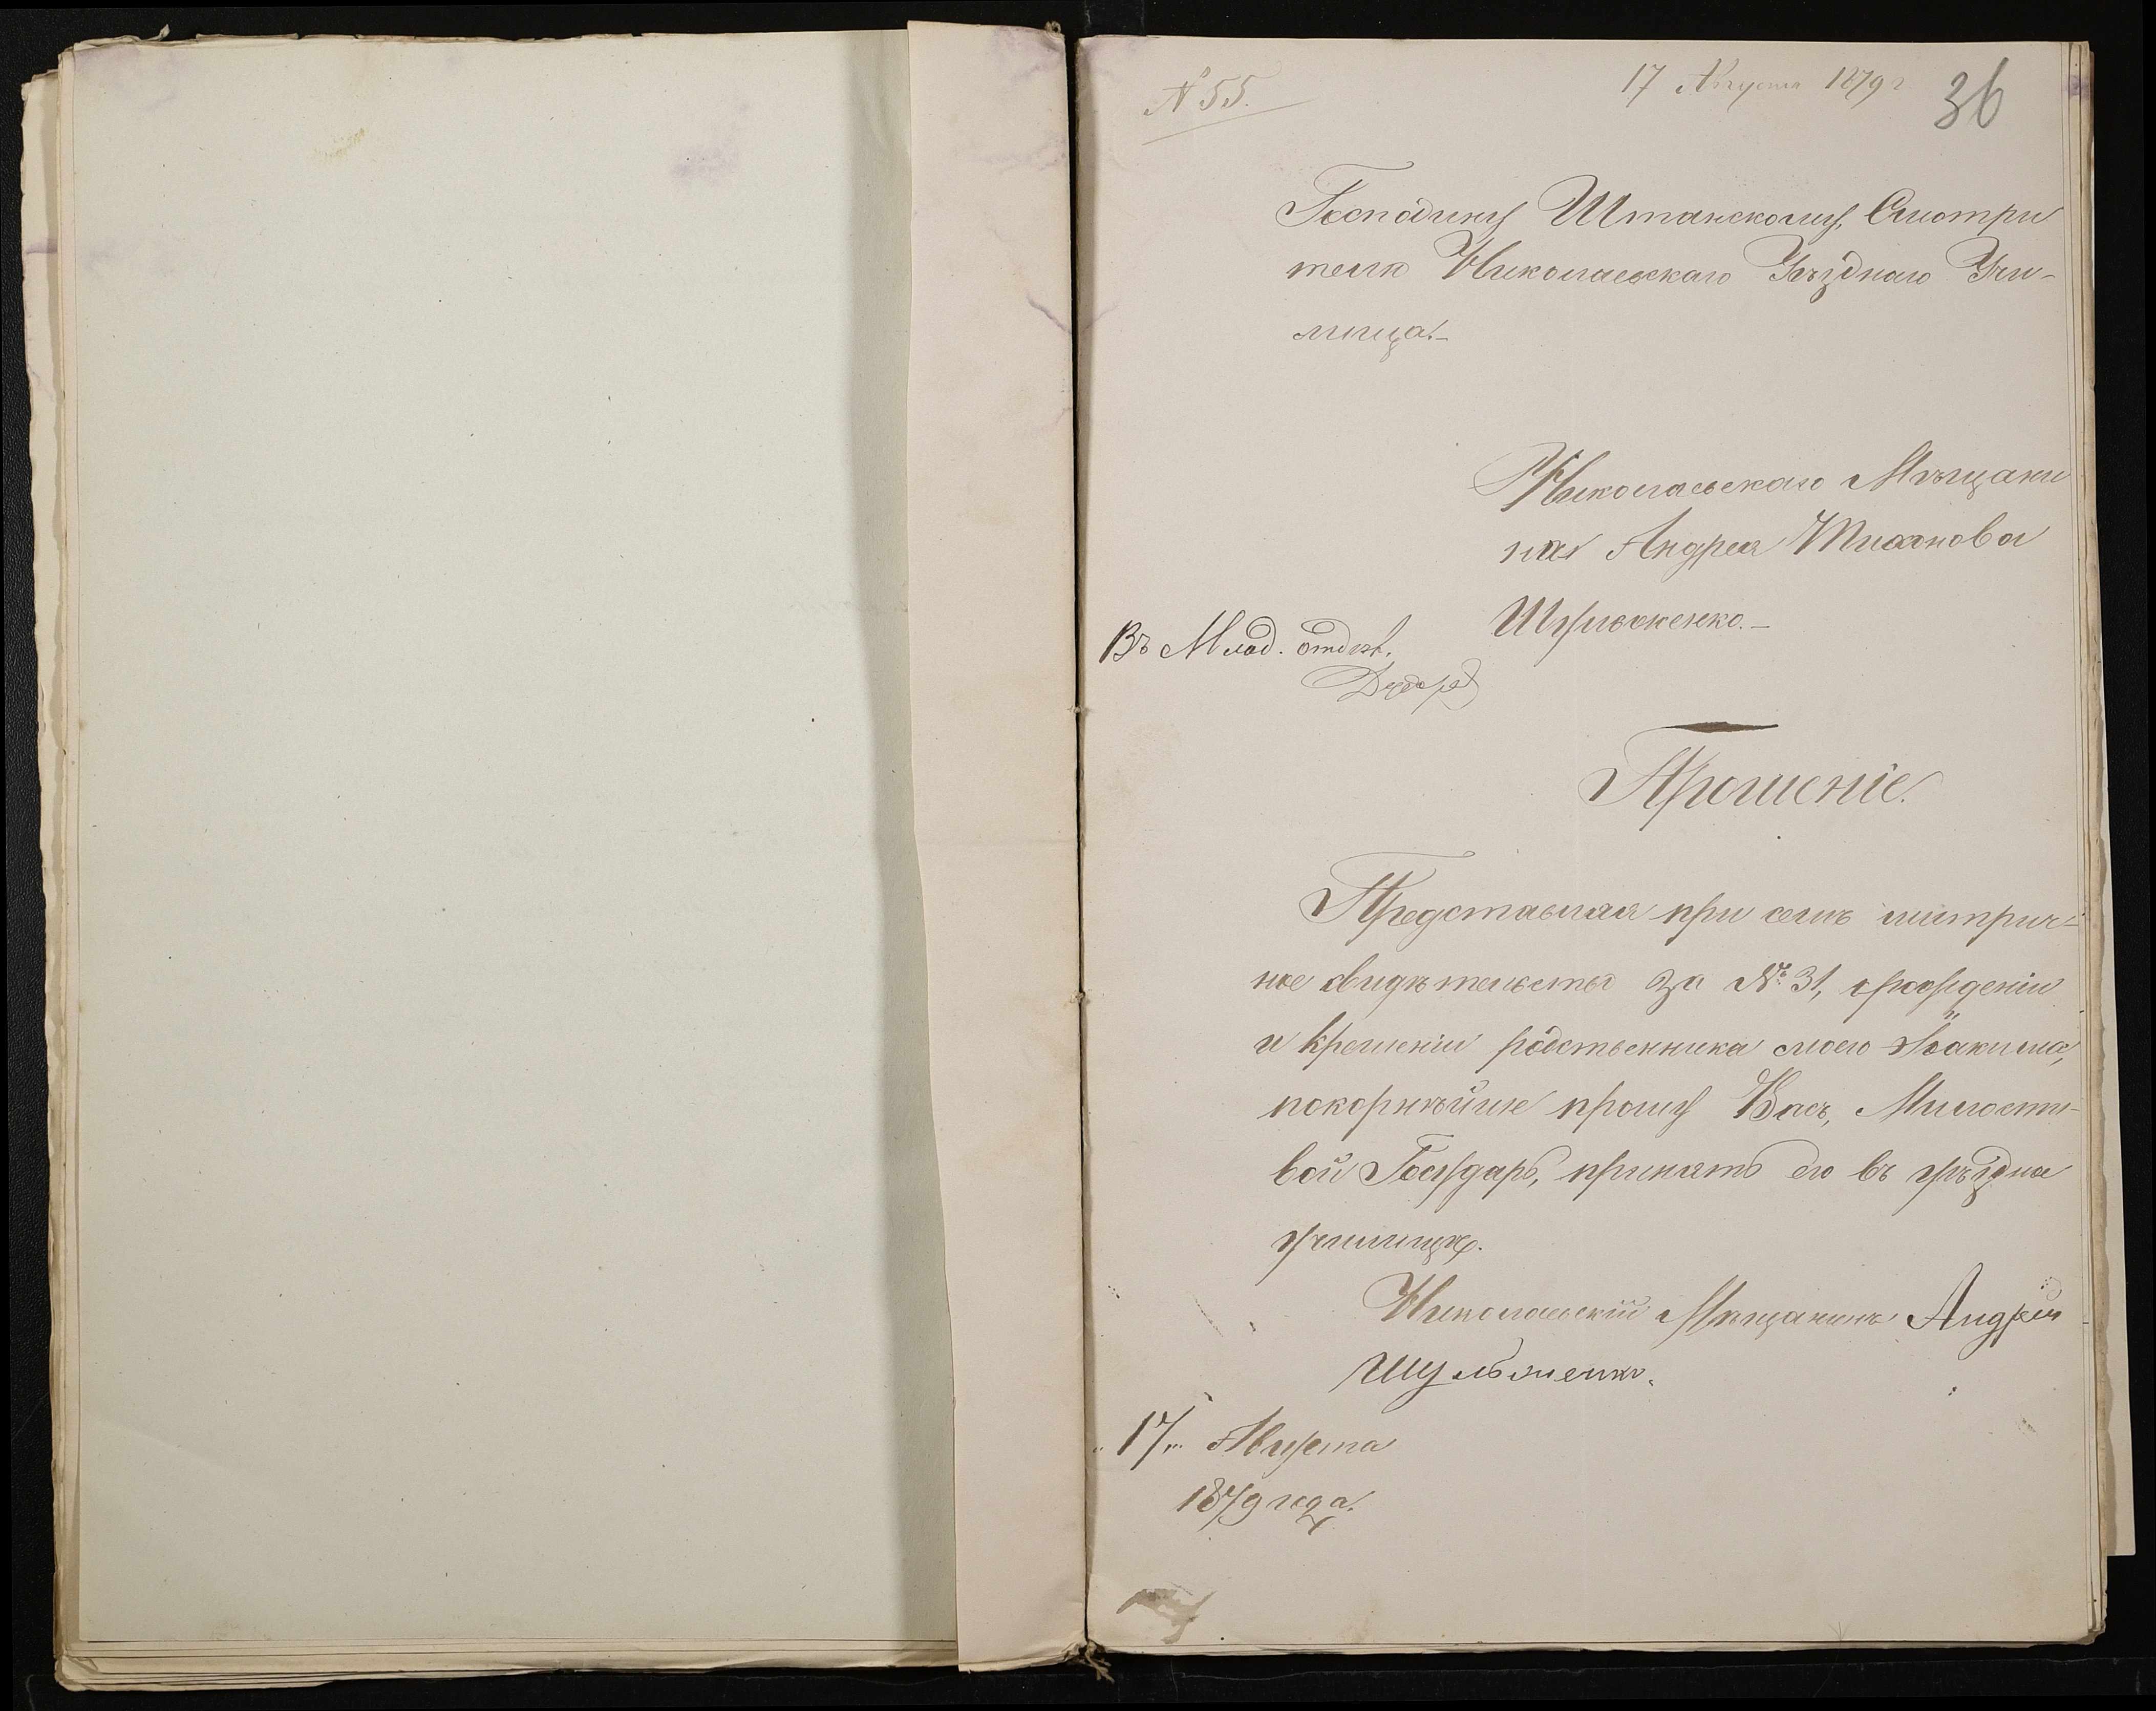 N 55.
17 Августа 1879 г
36
Господину Штатскому, Смотри
телю Николаевскаго Уѣзднаго Учи-
лища.-
Николаевскаго Мѣщани
на Андрея Тихонова
Шульженко.-
Въ Млад. отдѣл.
Прошеніе.
Представляя при семъ метрич-
ное свидѣтельство за № 31, о рожденіи
и крещеніи родственника моего Іоакима,
покорнѣйше прошу Васъ, Милости-
вой Государь, принять его въ уѣздное
училище.
Николаевскій Мѣщанинъ Андрей
Шульженко.
"17" Августа
1879 года.